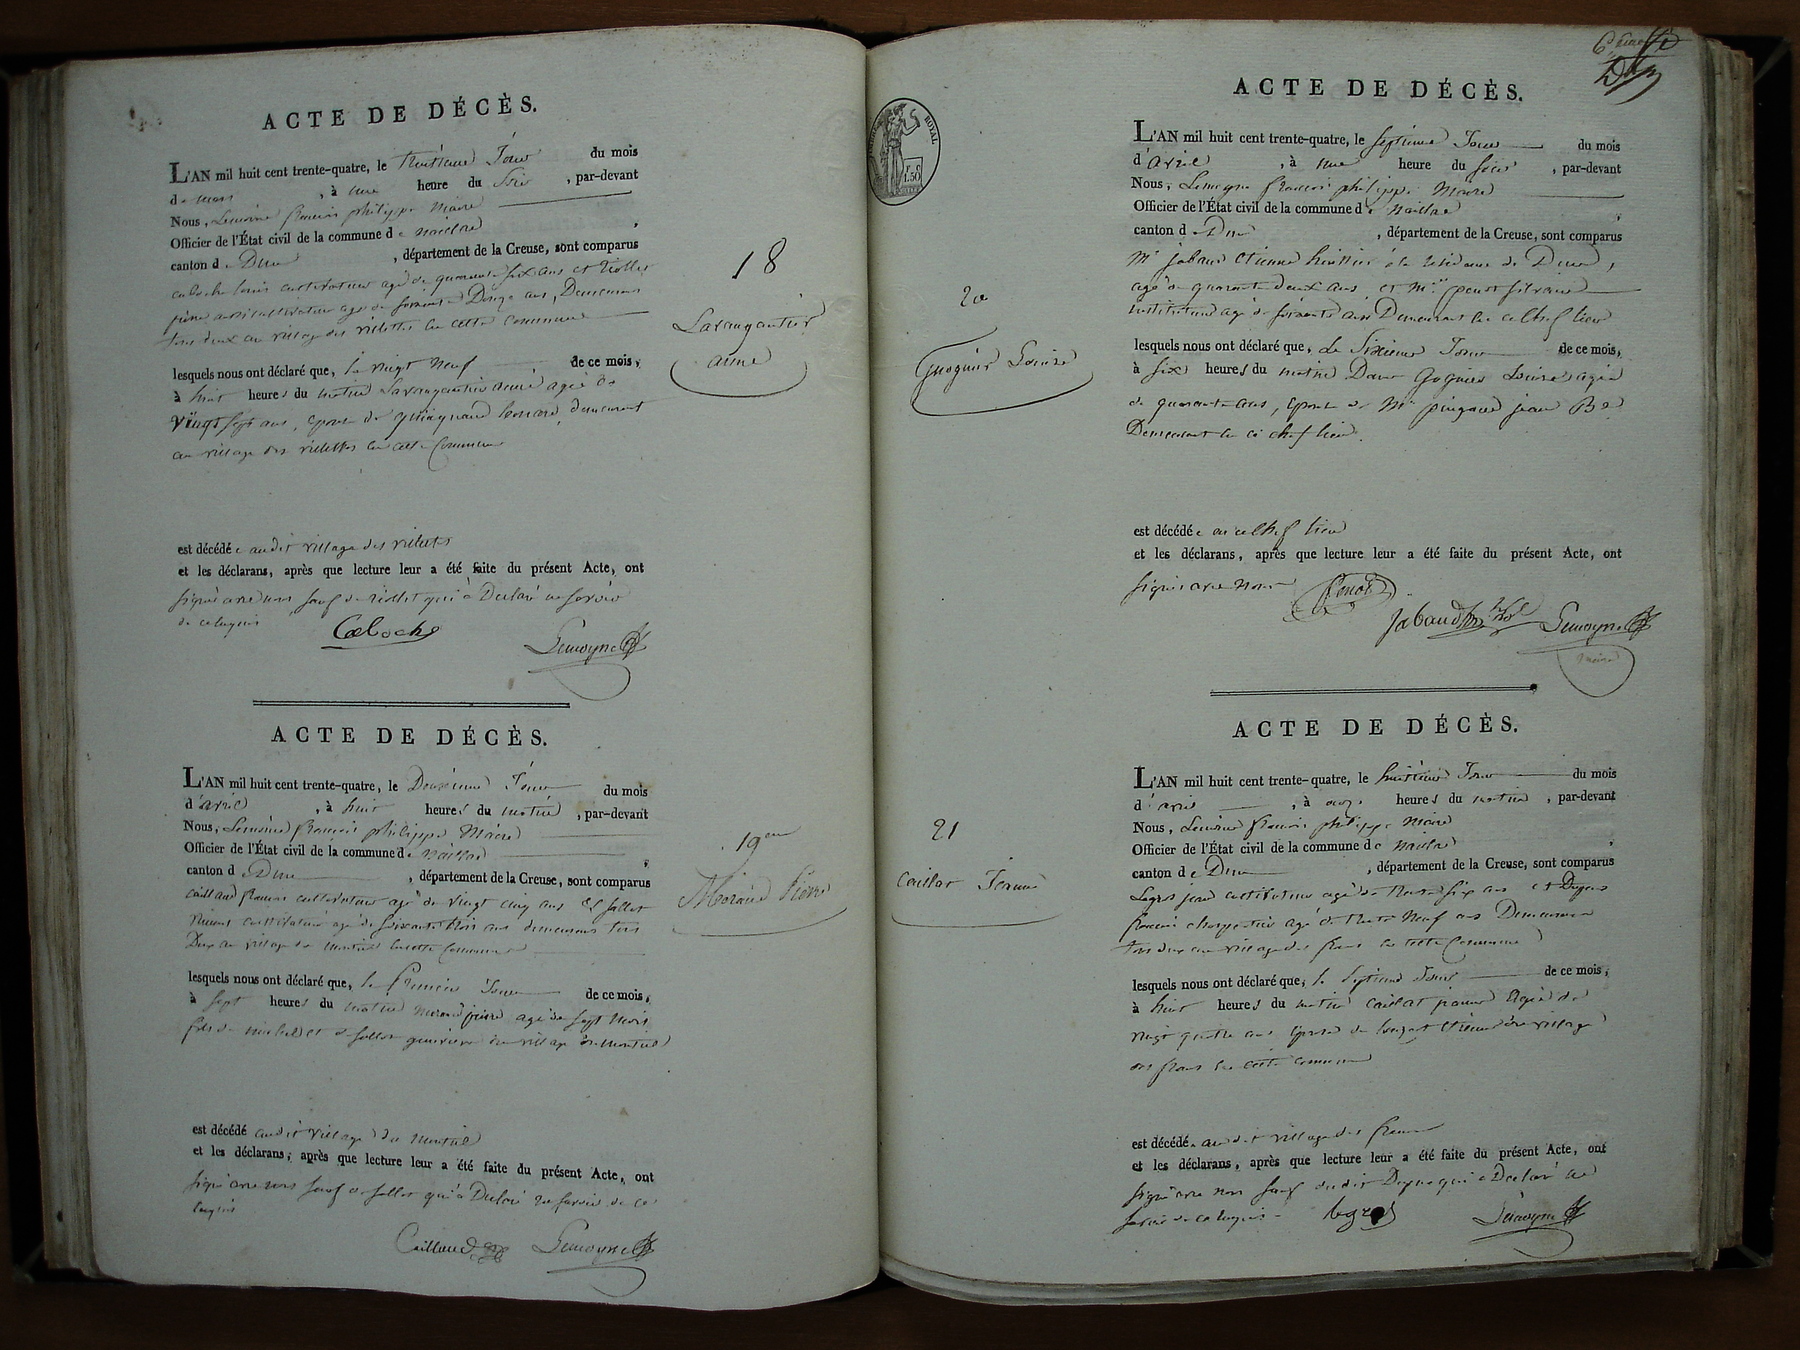 ACTE DE DÉCÈS.
L'AN mil huit cent trente-quatre, le trentième Jour du mois
de mars, à une heure du Soir, par-devant
Nous, Lemoine françois philippe Maire
Officier de l'État civil de la commune de naillac,
canton de Dun, département de la Creuse, sont comparus
caloche louis cultivateur agé de quarante six ans et riollet
pierre aussi cultivateur agé de soixante Douze ans, Demeurans
tous deux au village des villettes en cette Commune
lesquels nous ont déclaré que, le vingt neuf de ce mois,
à huit heures du matin Lavaugautier anne agée de
vingt sept ans, Epouse de quiaignaud leonard, demeurant
au village des villettes en cette Commune
est décédée audit village des villettes
et les déclarans, après que lecture leur a été faite du présent Acte, ont
signé avec nous sauf de riollet qui a Declaré ne savoir
de ce Enquis
Caloche Lemoyne
18
Lavaugautier
anne
ACTE DE DÉCÈS.
L'AN mil huit cent trente-quatre, le Deuxième Jour du mois
d'avril, à huit heures du matin, par-devant
Nous, Lemoine françois philippe Maire
Officier de l'État civil de la commune de naillac,
canton de Dun, département de la Creuse, sont comparus
caillaud françois cultivateur agé de vingt cinq ans et sallot
cultivateur agé de soixante trois ans demeurans tous
Deux au village du monteil en cette Commune
lesquels nous ont déclaré que, le Premier Jour de ce mois,
à sept heures du matin moraud pierre agé de sept mois
fils de michel et de sallot geneviève du village du monteil
est décédé audit village du monteil
et les déclarans, après que lecture leur a été faite du présent Acte, ont
signé avec nous sauf de sallot qui a Declaré ne savoir de ce
enquis
Caillaud Lemoyne
19eme
Moraud Pierre
ROYAL
1.50
ACTE DE DÉCÈS.
L'AN mil huit cent trente-quatre, le septième Jour du mois
d'avril, à une heure du soir, par-devant
Nous, Lemoyne françois philippe Maire
Officier de l'État civil de la commune de naillac,
canton de Dun, département de la Creuse, sont comparus
Mr jabaud Etienne huissier à la résidence de Dun,
agé de quarante deux ans, et Mr penot silvain
instituteur agé de soixante ans Demeurant en ce chef lieu
lesquels nous ont déclaré que, le Sixieme Jour de ce mois,
à six heures du matin Dame Goguier Louise agée
de quarante ans, Epouse de Mr pingaud jean
Demeurant en ce chef lieu.
est décédée en ce chef lieu
et les déclarans, après que lecture leur a été faite du présent Acte, ont
signés avec Nous Penot
Jabaud Lemoyne
maire
20
Guoguier Louise
ACTE DE DÉCÈS.
L'AN mil huit cent trente-quatre, le huitième Jour du mois
d'avril, à onze heures du matin, par-devant
Nous, Lemoine françois philippe Maire
Officier de l'État civil de la commune de naillac,
canton de Dun, département de la Creuse, sont comparus
Legros jean cultivateur agé de trente six ans et
françois charpentier agé de trente neuf ans Demeurans
tous deux au village des frans en cette Commune
lesquels nous ont déclaré que, le septieme Jour de ce mois,
à huit heures du matin caillat jeanne agée de
vingt quatre ans Epouse de Etienne du village
des frans en cette Commune
est décédée audit village des frans
et les déclarans, après que lecture leur a été faite du présent Acte, ont
signé avec nous sauf dudit qui a Declaré ne
savoir de ce enquis. legros Lemoyne
21
caillat Jeanne